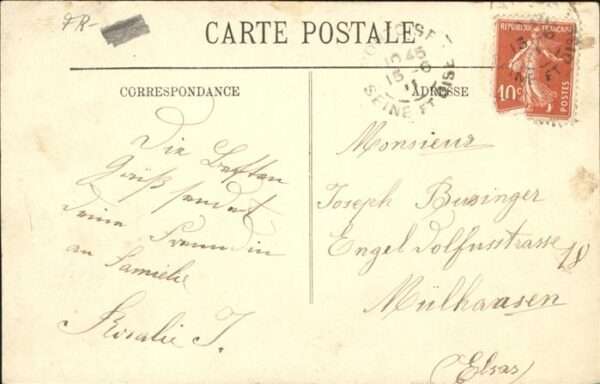 FR-
CARTE POSTALE
PONTOISE
10 45
15-6
11
SEINE ET OISE
REPUBLIQUE FRANÇAISE
10c
POSTES
CORRESPONDANCE
ADRESSE
Die Besten
Grüß sendet
deine Freundin
an Familie
Rosalie J.
Monsieur
Joseph Businger
Engel Dolfusstrasse 18
Mülhausen
(Elsas)